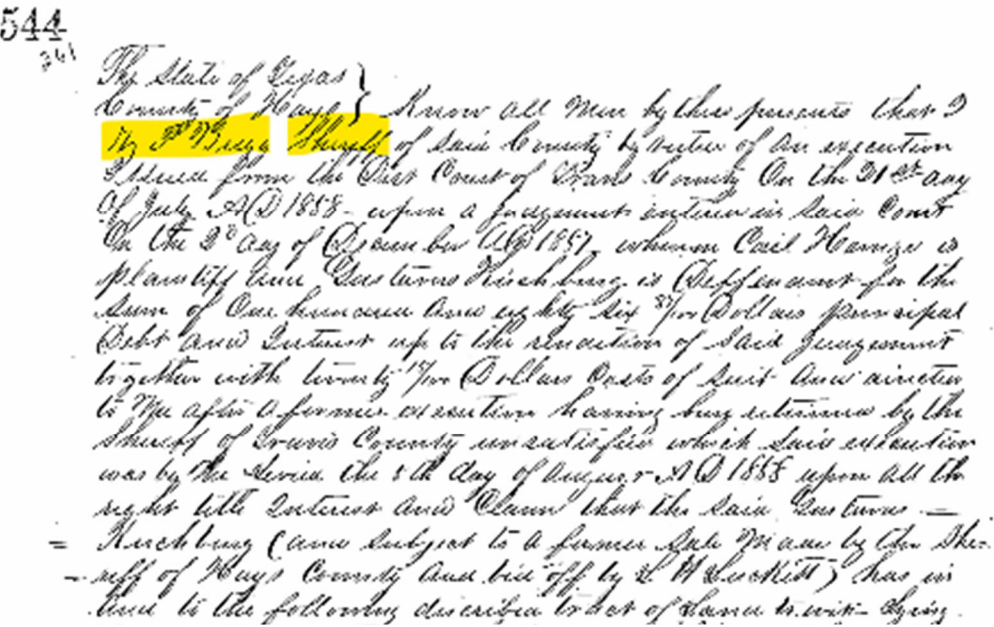 544
261
The State of Texas }
County of Hays } Know all Men by these presents that I
Sheriff of said County by virtue of an execution
Issued from the Dist Court of Travis County On the 21st day
Of July AD 1858 - upon a Judgement entered in said Court
On the 2d day of December AD 1857 wherein Carl is
plaintiff and Gustavus is Deffendant for the
sum of One hundred and eighty six /100 Dollars principal
Debt and Interest up to the rendition of said Judgement
together with twenty /100 Dollars Costs of suit and directed
to Me after a former execution having been returned by the
Sheriff of Travis County unsatisfied which said execution
was by Me levied the 5th day of August AD 1858 upon all the
right title Interest and Claim that the said Gustavus —
= (and subject to a former Sale Made by the She=
- riff of Hays County and bid off by ) has in
and to the following described tract of Land to wit - Lying